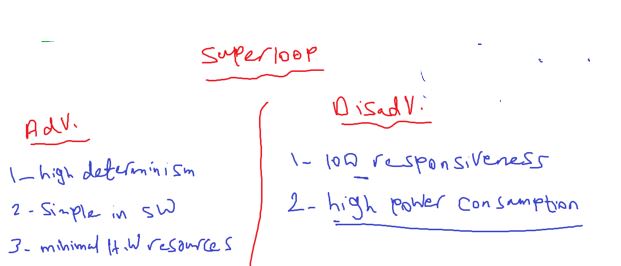 Superloop
Adv.
1- high determinism
2- Simple in SW
3- minimal H.W resources
Disadv.
1- low responsiveness
2- high power consamption